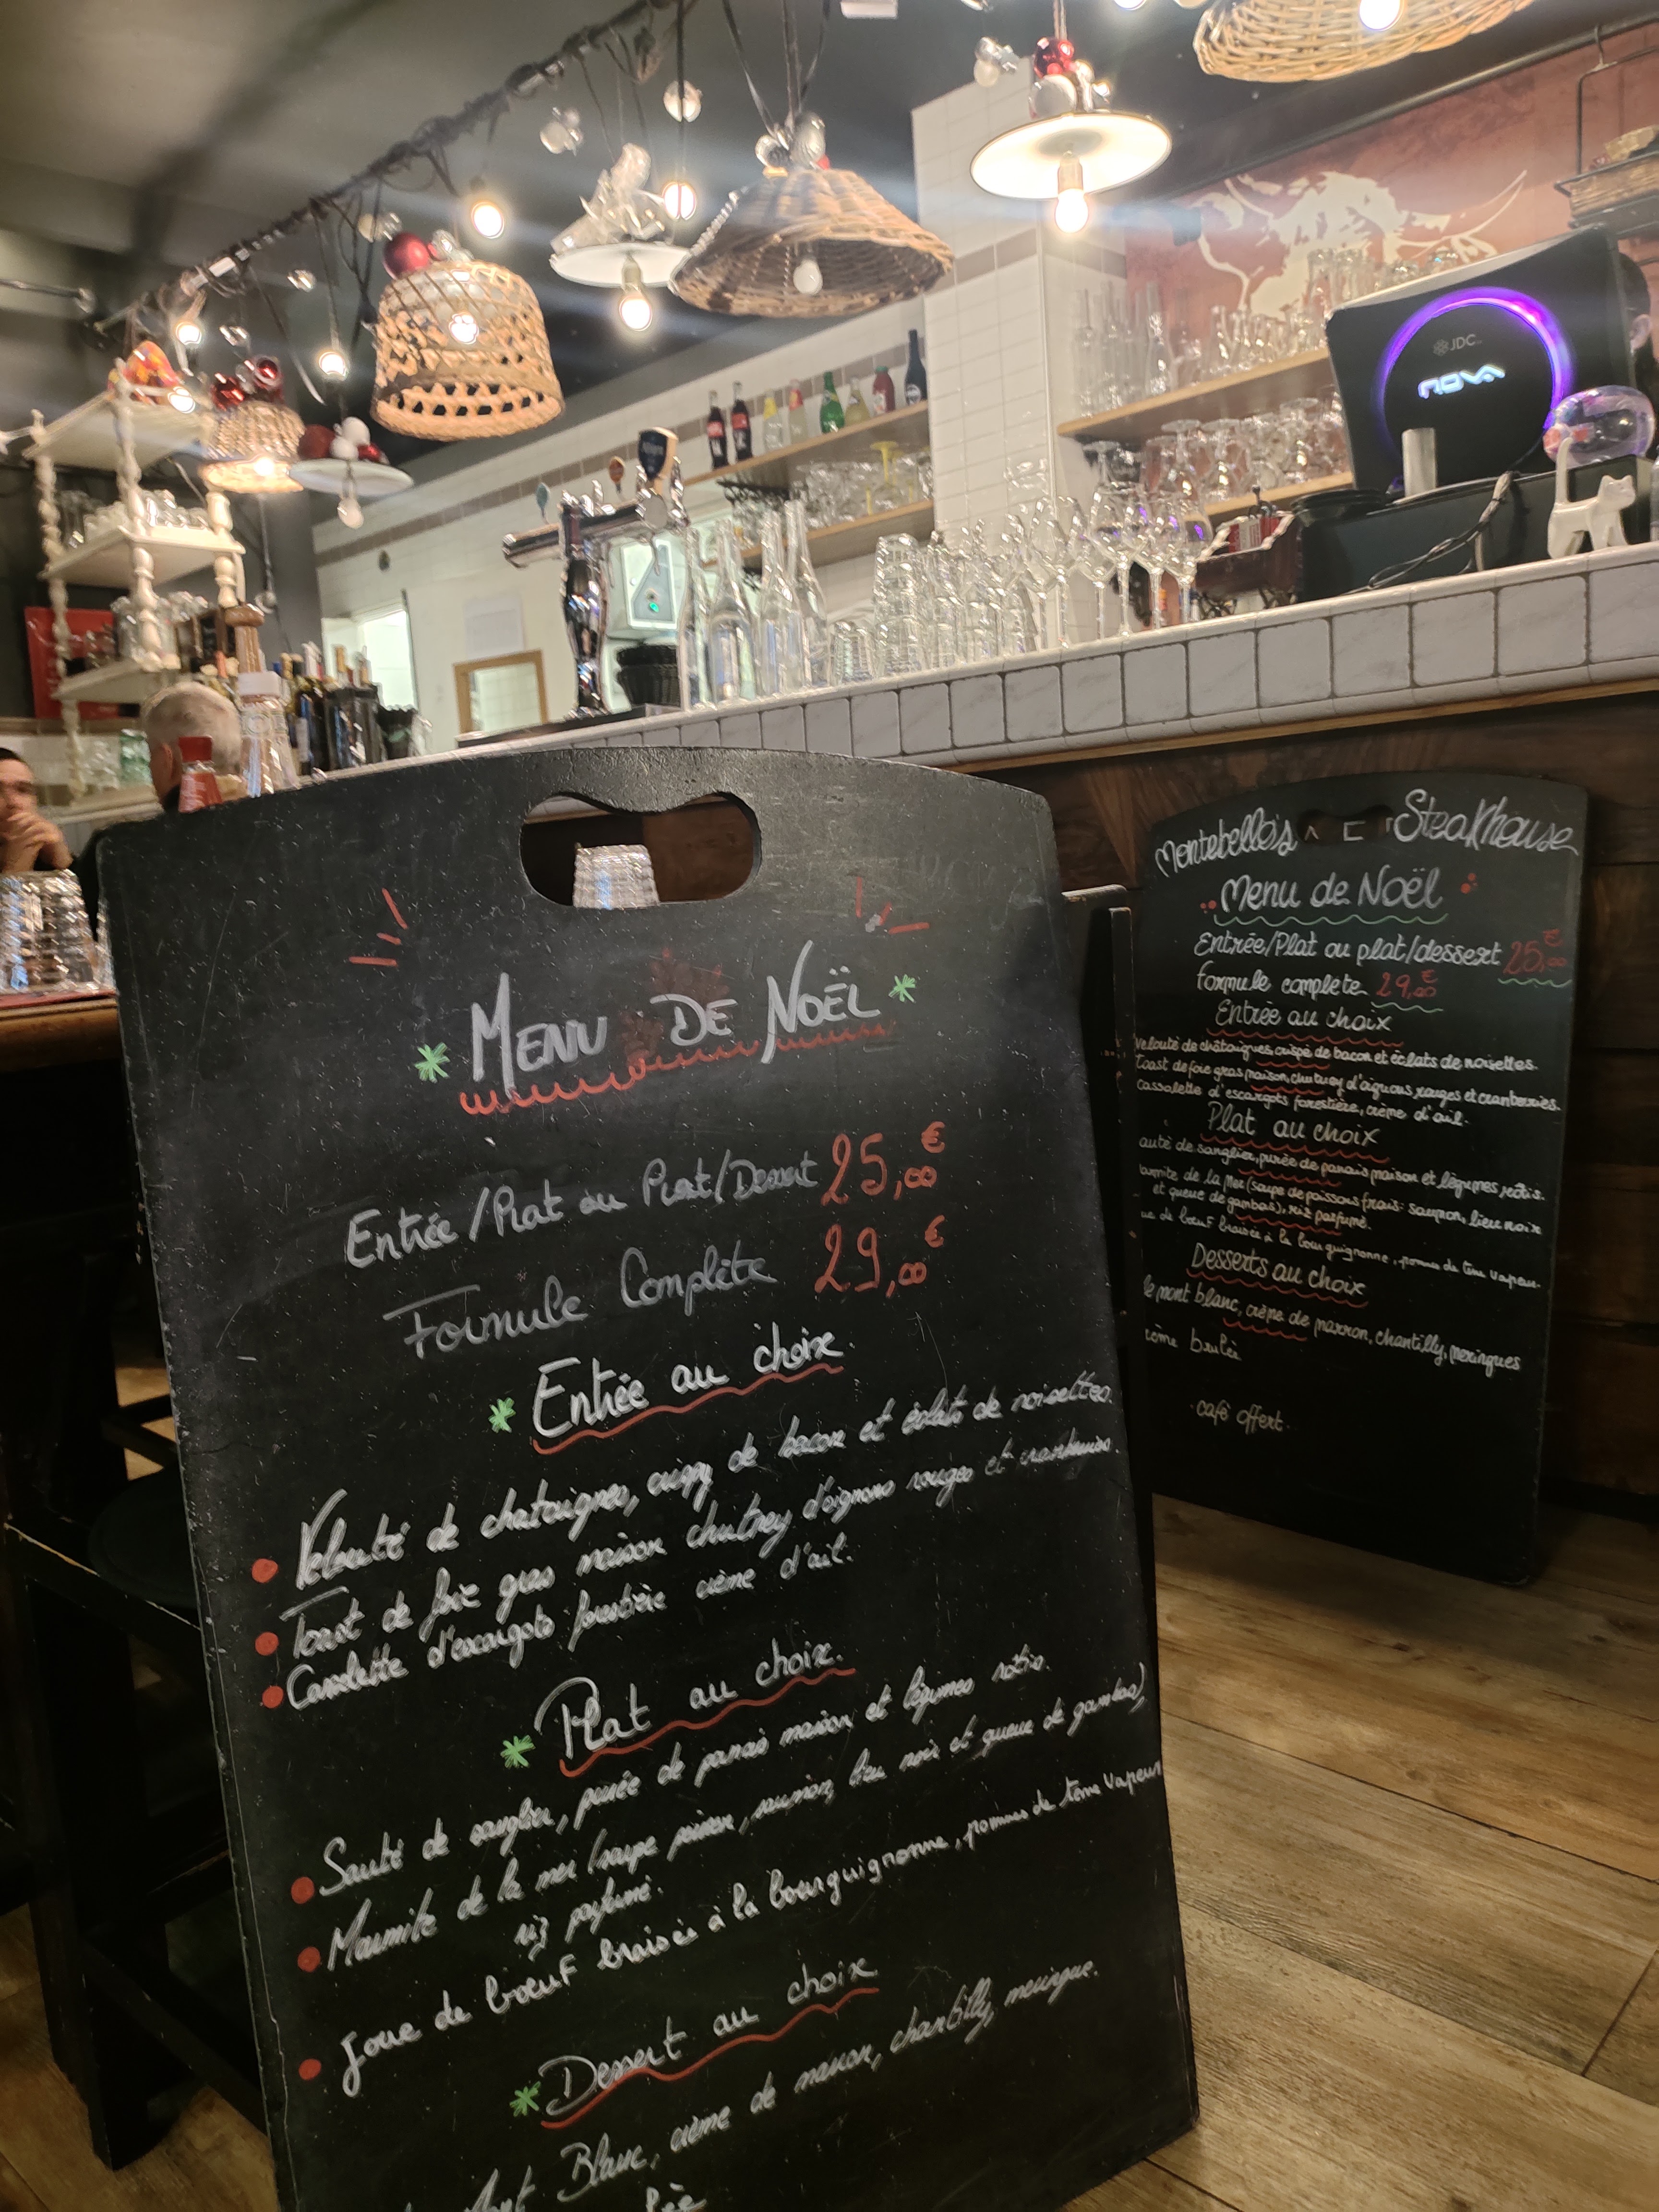 JDC
NOVA
MENU DE NOËL
Entrée/Plat ou Plat/Dessert 25,00€
Formule Complète 29,00€
Entrée au choix.
Velouté de chataignes, crispy de bacon et éclats de noisettes.
Toast de foie gras maison chutney d'oignons rouges et cranberries.
Cassolette d'escargots forestière crème d'ail.
Plat au choix.
Sauté de sanglier, purée de panais maison et légumes rotis.
Marmite de la mer (soupe poisson, saumon, lieu noir et queue de gambas),
riz parfumé.
Joue de bœuf braisée à la bourguignonne, pommes de terre vapeur
Dessert au choix
Mont Blanc, crème de marron, chantilly, meringue.
lée
Montebello's Steakhouse
Menu de Noël
Entrée/Plat ou plat/dessert 25,00€
formule complète 29,00€
Entrée au choix
Velouté de châtaignes, crispé de bacon et éclats de noisettes.
Toast de foie gras maison, chutney d'oignons rouges et cranberries.
cassolette d'escargots forestière, crème d'ail.
Plat au choix
auté de sanglier, purée de panais maison et légumes rotis.
armite de la mer (soupe de poissons frais: saumon, lieu noir
et queue de gambas), riz parfumé.
ue de bœuf braisée à la bourguignonne, pommes de terre vapeur
Desserts au choix
le mont blanc, crème de marron, chantilly, meringues
rème brulée
café offert.